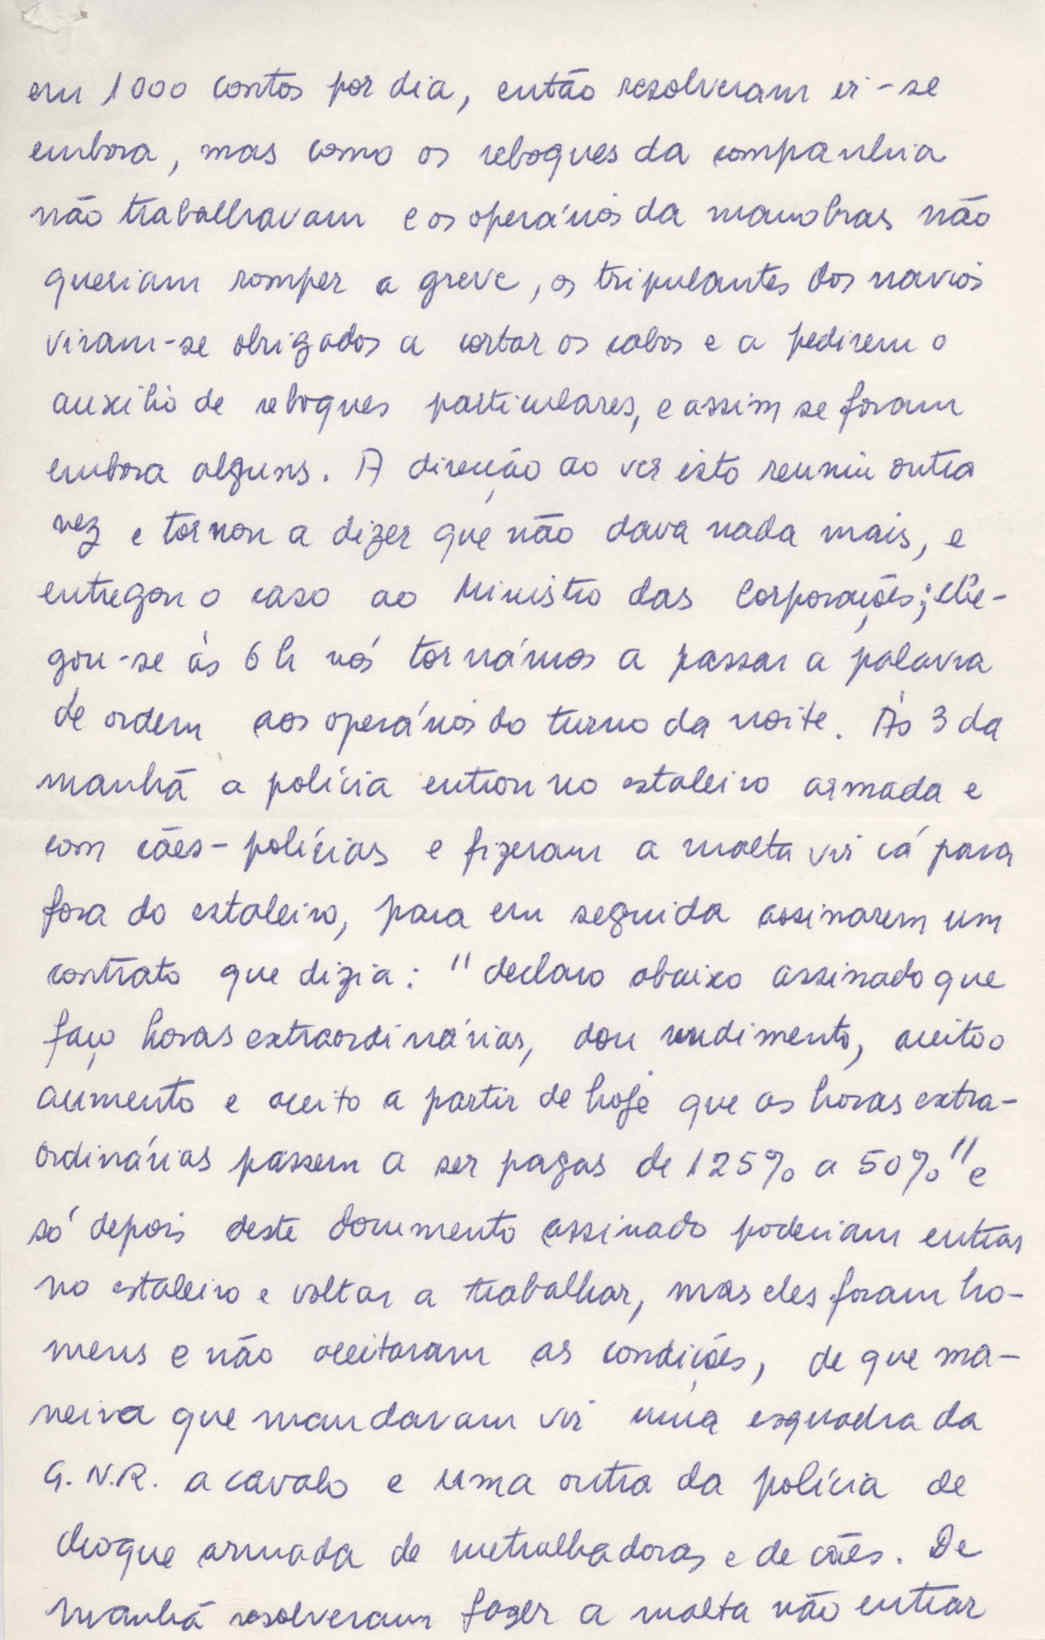 em 1000 contos por dia, então resolveram ir-se
embora, mas como os reboques da companhia
não trabalhavam e os operários da manobras não
queriam romper a greve, os tripulantes dos navios
viram-se obrigados a cortar os cabos e a pedirem o
auxilio de reboques particulares, e assim se foram
embora alguns. A direcção ao ver isto reuniu outra
vez e tornou a dizer que não dava nada mais, e
entregou o caso ao Ministro das Corporações; che-
gou-se às 6 h nós tornámos a passar a palavra
de ordem aos operários do turno da noite. Às 3 da
manhã a polícia entrou no estaleiro armada e
com cães-polícias e fizeram a malta vir cá para
fora do estaleiro, para em seguida assinarem um
contrato que dizia: "declaro abaixo assinado que
faço horas extraordinárias, dou rendimento, aceito o
aumento e aceito a partir de hoje que as horas extra-
ordinárias passem a ser pagas de 125% a 50%" e
só depois deste documento assinado poderiam entrar
no estaleiro e voltar a trabalhar, mas eles foram ho-
mens e não aceitaram as condições, de que ma-
neira que mandavam vir uma esquadra da
G.N.R. a cavalo e uma outra da polícia de
choque armada de metralhadoras e de cães. De
manhã resolveram fazer a malta não entrar